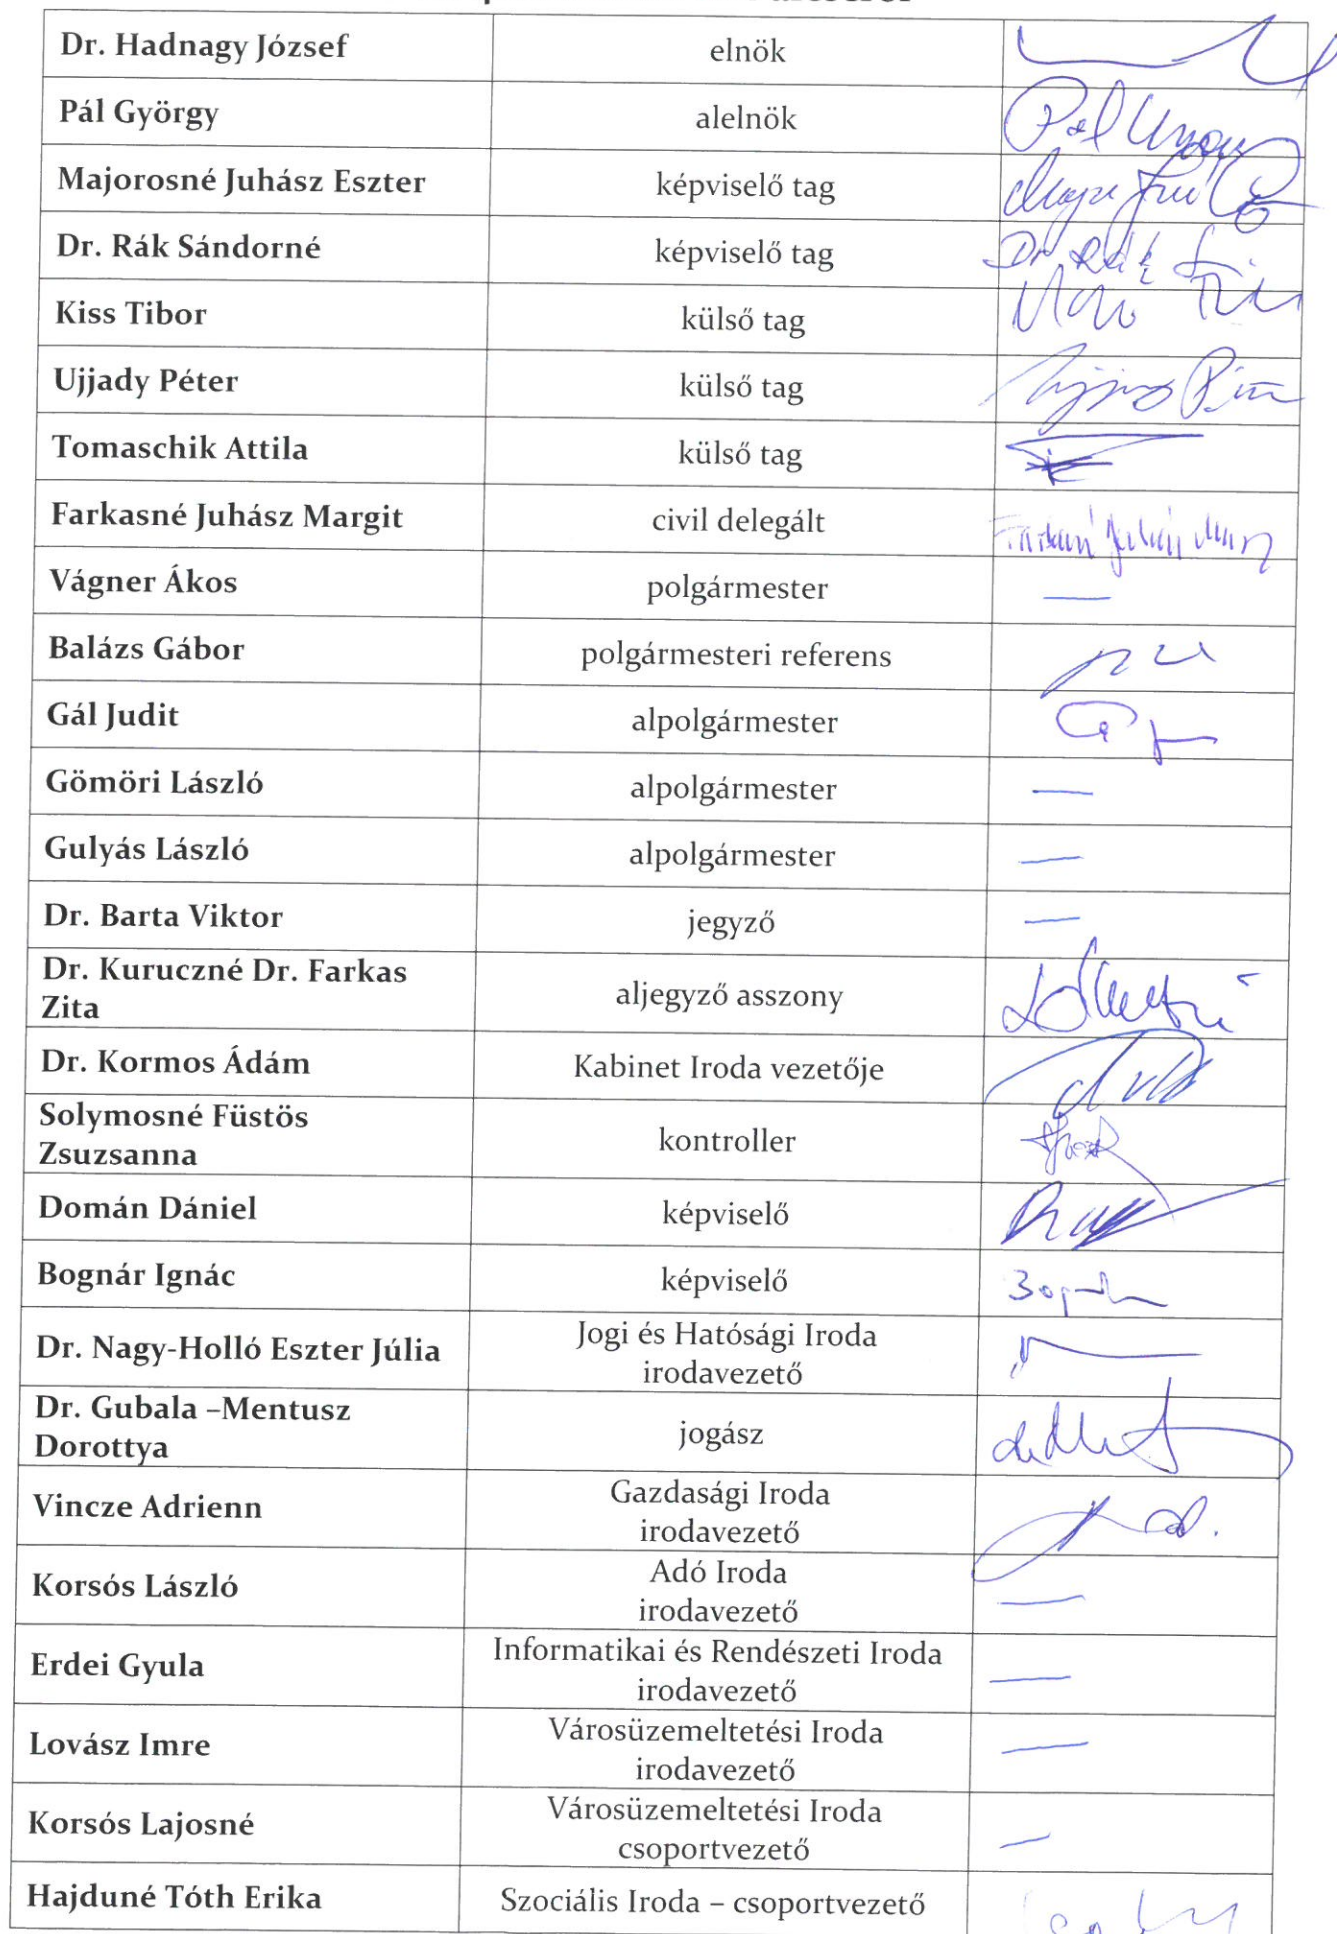 Dr. Hadnagy József elnök
Pál György alelnök Pál György
Majorosné Juhász Eszter képviselő tag
Dr. Rák Sándorné képviselő tag Dr Rák
Kiss Tibor külső tag
Ujjady Péter külső tag
Tomaschik Attila külső tag
Farkasné Juhász Margit civil delegált
Vágner Ákos polgármester —
Balázs Gábor polgármesteri referens
Gál Judit alpolgármester
Gömöri László alpolgármester —
Gulyás László alpolgármester —
Dr. Barta Viktor jegyző —
Dr. Kuruczné Dr. Farkas
Zita aljegyző asszony
Dr. Kormos Ádám Kabinet Iroda vezetője
Solymosné Füstös
Zsuzsanna kontroller
Domán Dániel képviselő
Bognár Ignác képviselő
Dr. Nagy-Holló Eszter Júlia Jogi és Hatósági Iroda
irodavezető
Dr. Gubala –Mentusz
Dorottya jogász
Vincze Adrienn Gazdasági Iroda
irodavezető
Korsós László Adó Iroda
irodavezető —
Erdei Gyula Informatikai és Rendészeti Iroda
irodavezető —
Lovász Imre Városüzemeltetési Iroda
irodavezető —
Korsós Lajosné Városüzemeltetési Iroda
csoportvezető —
Hajduné Tóth Erika Szociális Iroda – csoportvezető